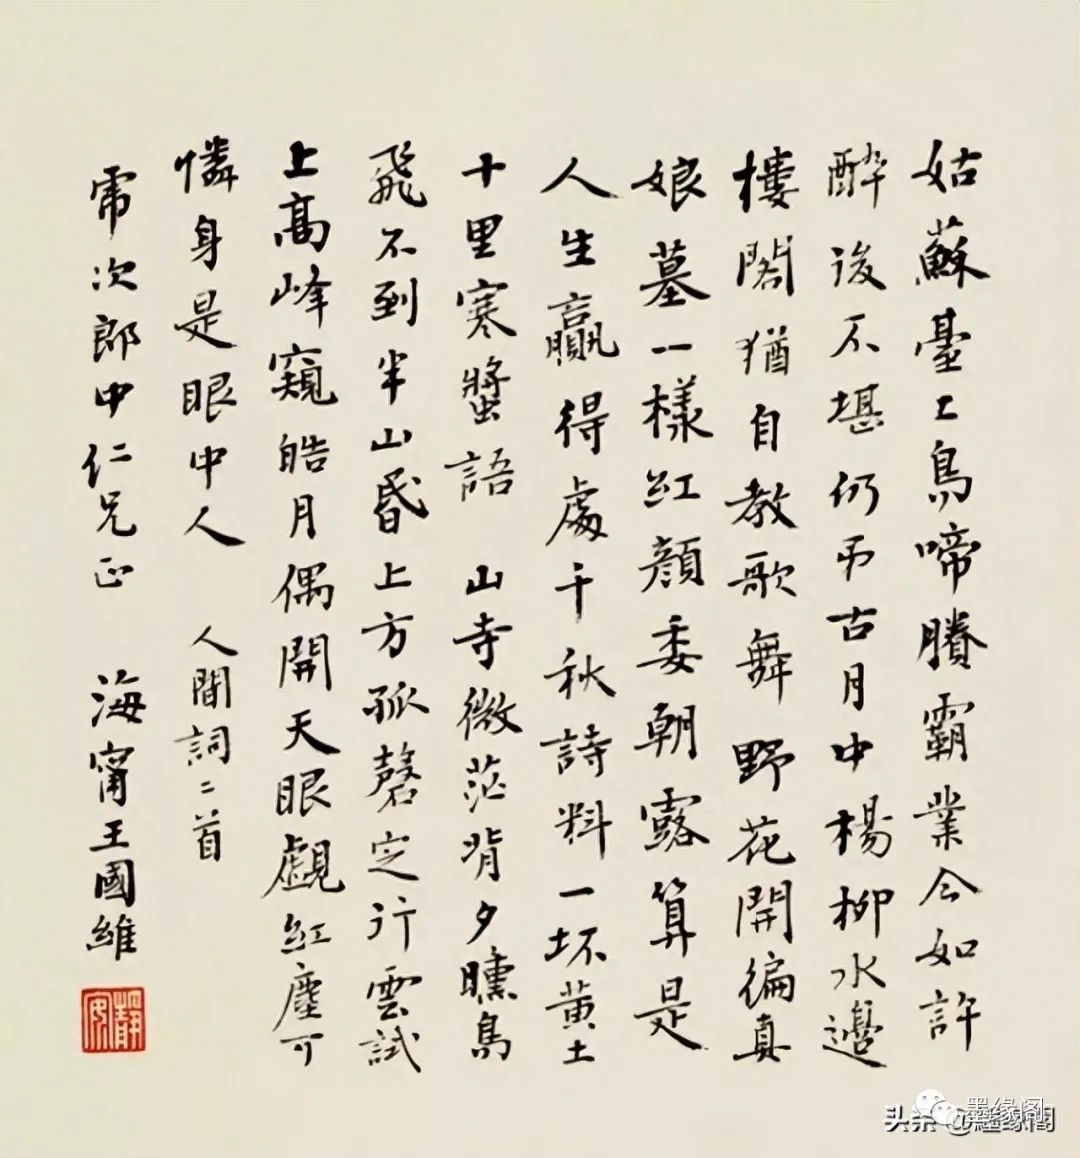 姑蘇臺上烏啼賸霸業今如許
醉後不堪仍弔古月中楊柳水邊
樓閣猶自教歌舞 野花開徧真
娘墓一樣紅顏委朝露算是
人生贏得處千秋詩料一坏黃土
十里寒螿語 山寺微茫背夕曛鳥
飛不到半山昏上方孤磬定行雲試
上高峰窺皓月偶開天眼覷紅塵可
憐身是眼中人 人間詞二首
乕次郎中仁兄正 海甯王國維
靜安
墨缘阁
头条 @墨缘阁